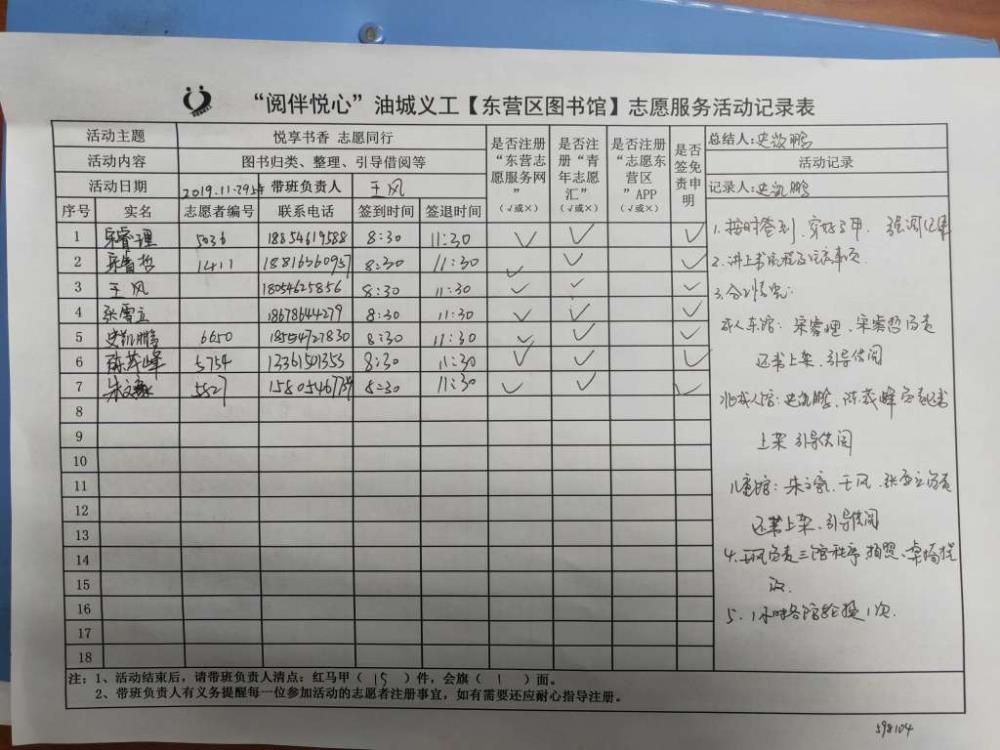 “阅伴悦心”油城义工【东营区图书馆】志愿服务活动记录表
活动主题 悦享书香 志愿同行 是否注册“东营志愿服务网”（√或×） 是否注册“青年志愿汇”（√或×） 是否注册“志愿东营区”APP（√或×） 是否签免责申明 总结人:史凯鹏
活动内容 图书归类、整理、引导借阅等 活动记录
活动日期 2019.11.29 带班负责人 王风 记录人:史凯鹏
序号 实名 志愿者编号 联系电话 签到时间 签退时间
1 宋睿理 5036 18854619588 8:30 11:30 √ √ √
2 宋睿哲 1411 18816560957 8:30 11:30 √ √ √
3 王风 18054625856 8:30 11:30 √ √ √
4 张雪立 18678644279 8:30 11:30 √ √ √
5 史凯鹏 6650 18554721830 8:30 11:30 √ √ √
6 陈茂峰 5754 13361501355 8:30 11:30 √ √ √
7 朱文 5527 8:30 11:30 √ √ √
8
9
10
11
12
13
14
15
16
17
18
1.按时签到、穿好马甲、强调纪律
2.讲上书流程及注意事项
3.分工情况:
成人东馆：宋睿理、宋睿哲负责
还书上架、引导借阅
成人馆：史凯鹏、陈茂峰负责还书
上架 引导借阅
儿童馆：朱文、王风、张雪立负责
还书上架、引导借阅
4.王风负责三馆秩序 拍照、
5.1小时各馆轮换1次.
注：1、活动结束后，请带班负责人清点：红马甲（ 15 ）件，会旗（ 1 ）面。
2、带班负责人有义务提醒每一位参加活动的志愿者注册事宜，如有需要还应耐心指导注册。
598104